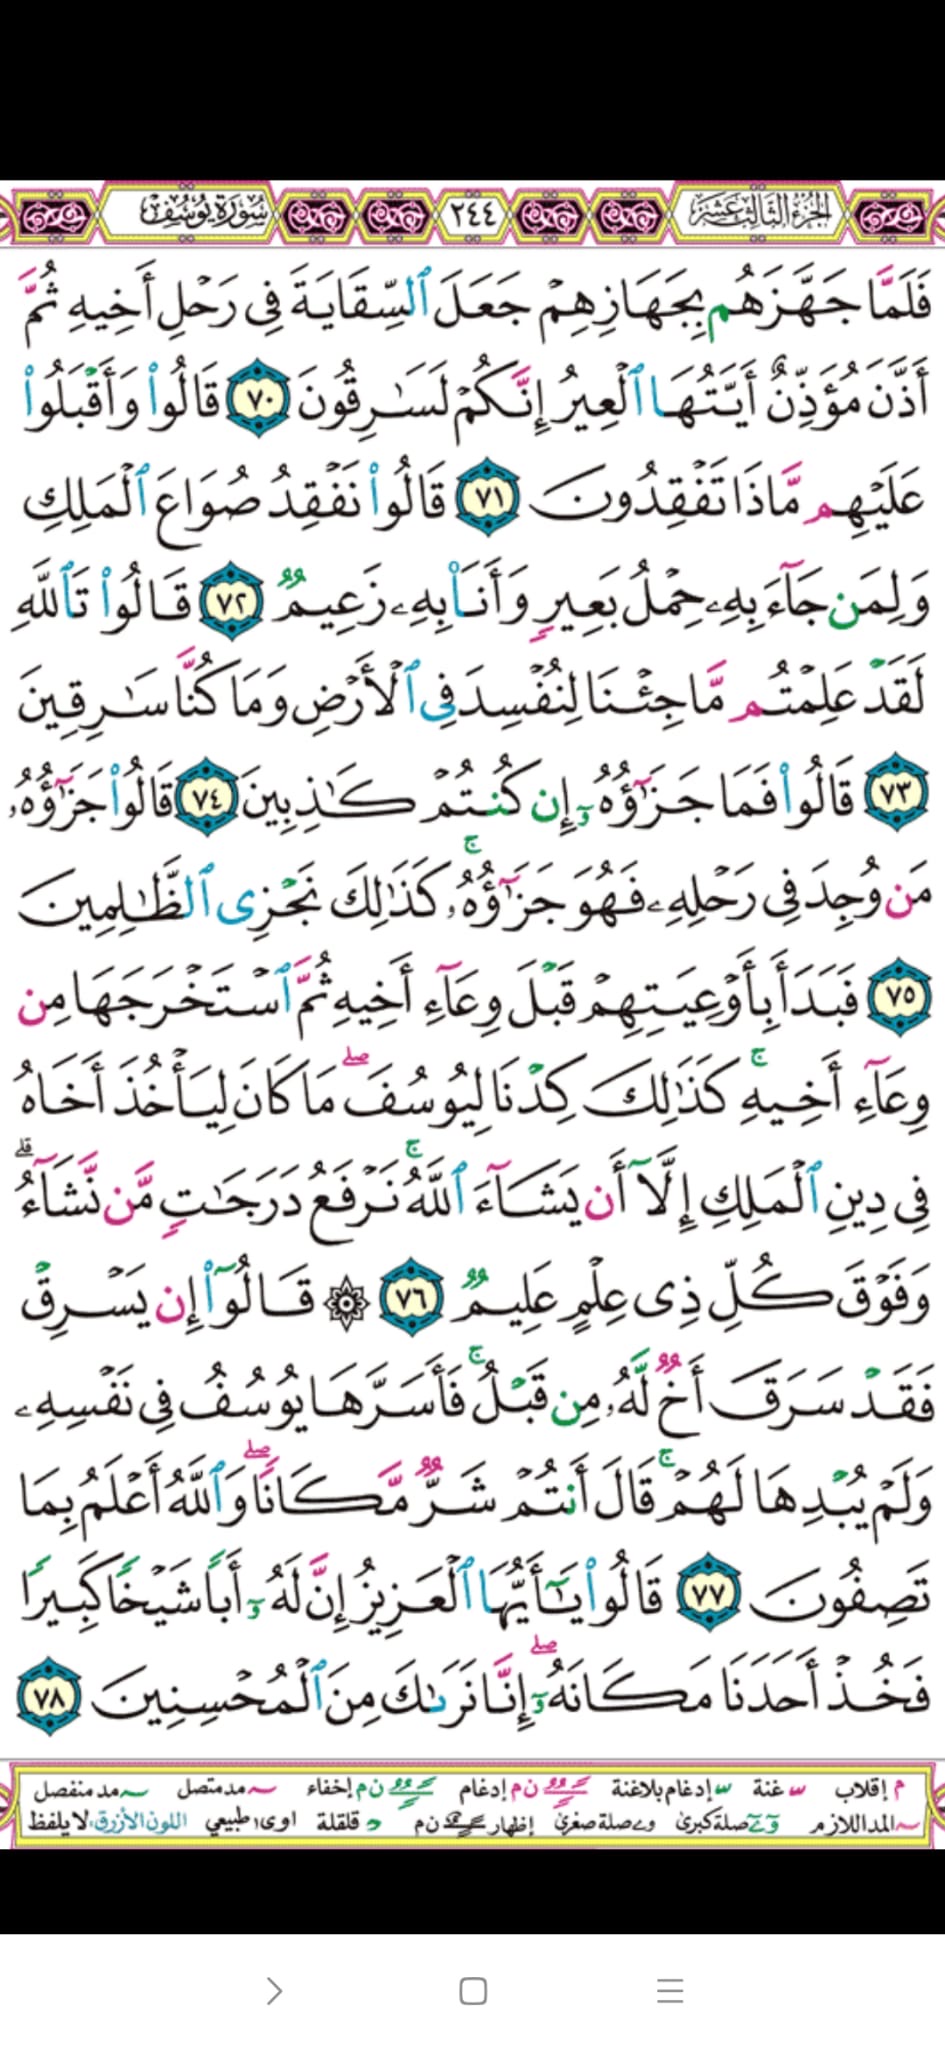 الجزء الثالث عشر ٢٤٤ سورة يوسف
فَلَمَّا جَهَّزَهُم بِجَهَازِهِمْ جَعَلَ ٱلسِّقَايَةَ فِى رَحْلِ أَخِيهِ ثُمَّ
أَذَّنَ مُؤَذِّنٌ أَيَّتُهَا ٱلْعِيرُ إِنَّكُمْ لَسَـٰرِقُونَ ٧٠ قَالُوا۟ وَأَقْبَلُوا۟
عَلَيْهِم مَّاذَا تَفْقِدُونَ ٧١ قَالُوا۟ نَفْقِدُ صُوَاعَ ٱلْمَلِكِ
وَلِمَن جَآءَ بِهِۦ حِمْلُ بَعِيرٍ وَأَنَا۠ بِهِۦ زَعِيمٌ ٧٢ قَالُوا۟ تَٱللَّهِ
لَقَدْ عَلِمْتُم مَّا جِئْنَا لِنُفْسِدَ فِى ٱلْأَرْضِ وَمَا كُنَّا سَـٰرِقِينَ
٧٣ قَالُوا۟ فَمَا جَزَٰٓؤُهُۥٓ إِن كُنتُمْ كَـٰذِبِينَ ٧٤ قَالُوا۟ جَزَٰٓؤُهُۥ
مَن وُجِدَ فِى رَحْلِهِۦ فَهُوَ جَزَٰٓؤُهُۥ ۚ كَذَٰلِكَ نَجْزِى ٱلظَّـٰلِمِينَ
٧٥ فَبَدَأَ بِأَوْعِيَتِهِمْ قَبْلَ وِعَآءِ أَخِيهِ ثُمَّ ٱسْتَخْرَجَهَا مِن
وِعَآءِ أَخِيهِ ۚ كَذَٰلِكَ كِدْنَا لِيُوسُفَ ۖ مَا كَانَ لِيَأْخُذَ أَخَاهُ
فِى دِينِ ٱلْمَلِكِ إِلَّآ أَن يَشَآءَ ٱللَّهُ ۚ نَرْفَعُ دَرَجَـٰتٍ مَّن نَّشَآءُ ۗ
وَفَوْقَ كُلِّ ذِى عِلْمٍ عَلِيمٌ ٧٦ ۞ قَالُوٓا۟ إِن يَسْرِقْ
فَقَدْ سَرَقَ أَخٌ لَّهُۥ مِن قَبْلُ ۚ فَأَسَرَّهَا يُوسُفُ فِى نَفْسِهِۦ
وَلَمْ يُبْدِهَا لَهُمْ ۚ قَالَ أَنتُمْ شَرٌّ مَّكَانًا ۖ وَٱللَّهُ أَعْلَمُ بِمَا
تَصِفُونَ ٧٧ قَالُوا۟ يَـٰٓأَيُّهَا ٱلْعَزِيزُ إِنَّ لَهُۥٓ أَبًا شَيْخًا كَبِيرًا
فَخُذْ أَحَدَنَا مَكَانَهُۥٓ ۖ إِنَّا نَرَىٰكَ مِنَ ٱلْمُحْسِنِينَ ٧٨
م إقلاب غنة إدغام بلاغنة ن م إدغام ن م إخفاء مد متصل مد منفصل
المد اللازم صلة كبرى و ے صلة صغرى إظهار ن م قلقلة اوى طبيعي اللون الأزرق، لا يلفظ